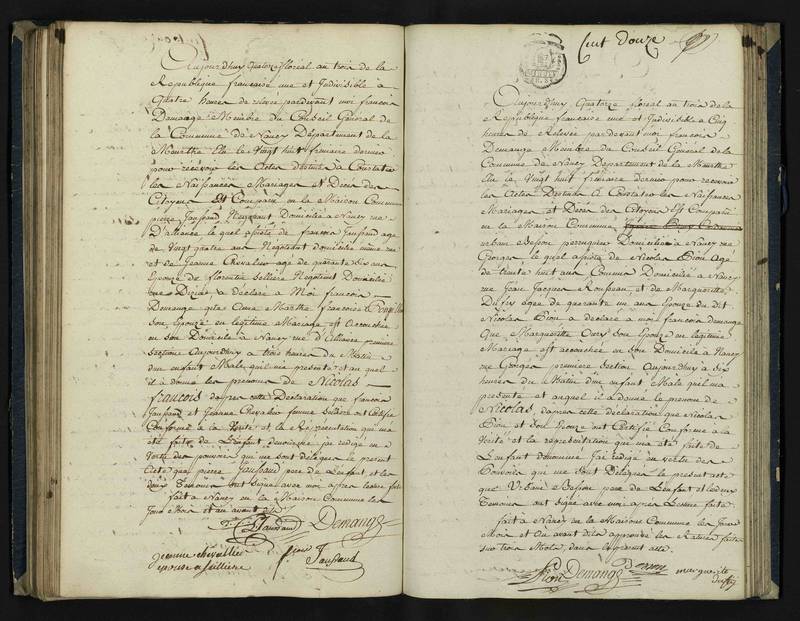 Aujourd'huy quatorze floreal an trois de la
Republique française une et Indivisible à
Quatre heures de relevé pardevant moi françois
Demange Membre du Conseil Général de
la Commune de Nancy Département de la
Meurthe Elu le Vingt huit frimaire dernier
pour récévoir les Actes destinés à Constater
les Naissances Mariages et Décès des
Citoyens Est Comparu en la Maison Commune
pierre Jaussaud Negotiant Domicilié à Nancy rue
D'alliance le quel assisté de françois Jaussaud agé
de Vingt quatre ans Négotiant domicilié même rue
et de Jeanne Chevalier agé de quarante ans
Epouse de florentin Sellière Négotiant Domicilié
rue a déclaré à Moi françois
Demange que Anne Marthe françoise
son Epouse en légitime Mariage est accouchée
en son Domicile à Nancy rue d'Alliance première
Section Aujourd'huy à trois heures du Matin
d'un enfant Male qu'il me présente et au quel
il a donné les prenoms de Nicolas
françois d'après cette Déclaration que françois
Jaussaud et Jeanne Chevalier femme Sellière ont Certifié
Conforme à la Vérité et la Réprésentation qui m'a
été faite de L'enfant dénommé j'ai redigé en
Vertu des pouvoirs qui me sont délégués le présent
Acte que pierre Jaussaud pere de L'enfant et les
deux Temoins ont Signé avec moi après lecture faite
fait à Nancy en la Maison Commune les
Jour Mois et an avant dits
Jaussaud Demange
jeanne chevallier pierre Jaussaud
epouse a sellière
Cent Douze
Aujourd'huy Quatorze floréal an trois de la
République française une et Indivisible à Cinq
heures de Relevée pardevant moi françois
Demange Membre du Conseil Général de la
Commune de Nancy Département de la Meurthe
Elu le Vingt huit frimaire dernier pour recevoir
les Actes Destinés à Constater les Naissances
Mariages et Décès des Citoyens Est Comparu
en la Maison Commune
urbain Besson perruquier Domicilié à Nancy rue
Georges le quel assisté de Nicolas Pion agé
de trente huit ans Commis Domicilié à Nancy
rue Jean Jacques Rousseau et de Marguerite
Dufey agée de quarante un ans Epouse du Dit
Nicolas Pion à déclaré à moi françois demange
Que Marguerite son Epouse en légitime
Mariage est accouchée en son Domicile à Nancy
rue Georges première section Aujourd'huy à Six
heures du Matin d'un enfant Male qu'il m'a
présenté et auquel il a donné le prenom de
Nicolas, d'après cette déclaration que Nicolas
Pion et son Epouse ont Certifié Conforme à la
Vérité et la représentation qui m'a été faite de
L'enfant dénommé j'ai redigé en vertu des
Pouvoirs qui me sont Délégués le présent acte
que Urbain Besson pere de L'enfant et les deux
Temoins ont signé avec moi après Lecture faite
fait à Nancy en la Maison Commune les Jour
Mois et an avant dits approuvé les Ratures faites
sur trois Mots, dans le présent acte.
Pion Demange Besson marguerite
dufey